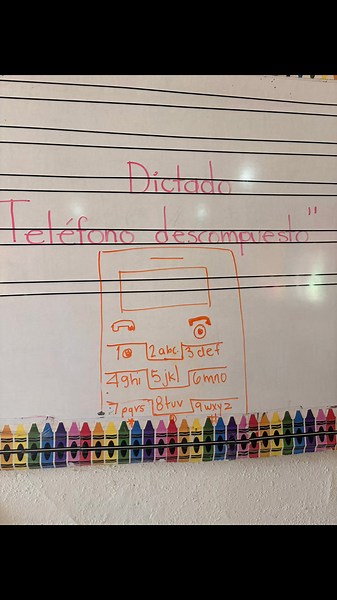 Dictado
Teléfono descompuesto"
1 2abc 3def
4ghi 5jkl 6mno
7pqrs 8tuv 9wxyz